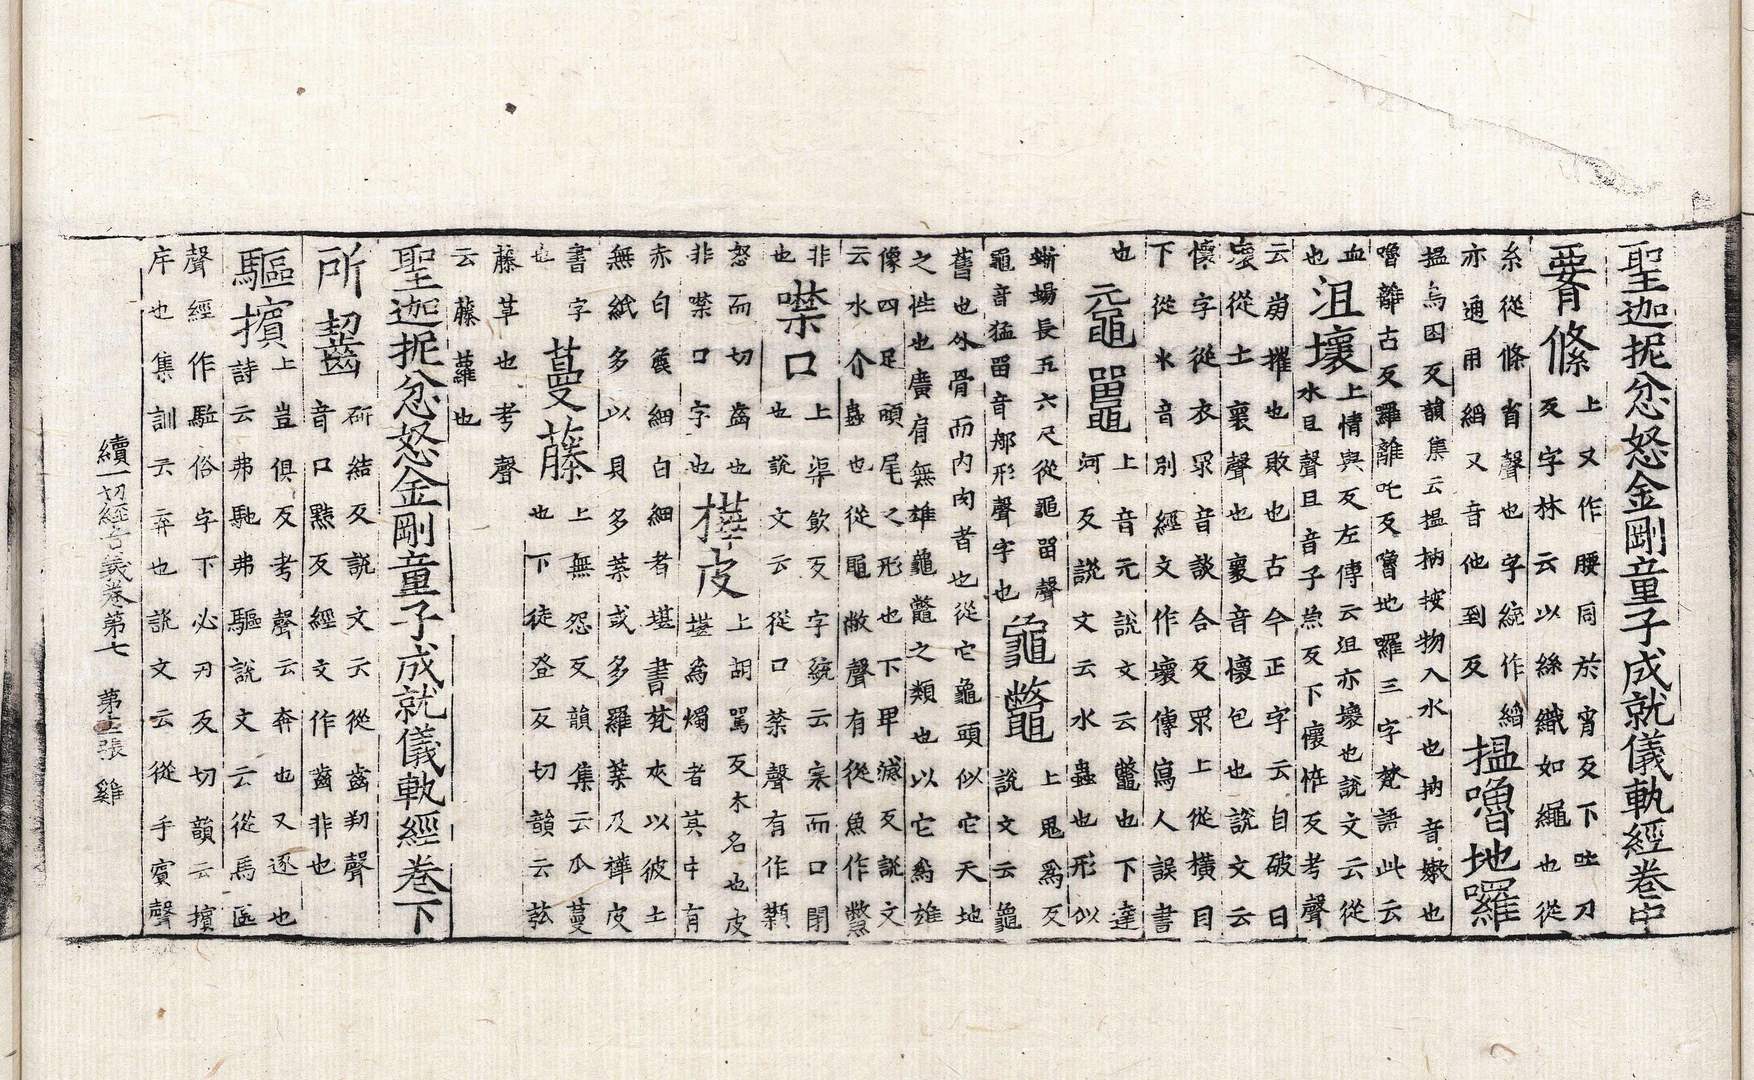 聖迦抳忿怒金剛童子成就儀軌經卷中
䙅絛
上又作腰同於宵反下吐刀
反字林云以絲織如繩也從
糸從條省聲也字統作縚
亦通用縚又音他到反
搵嚕地囉
搵烏困反韻集云搵抐按物入水也抐音嫩也
嚕離古反羅離吒反嚕地囉三字梵語此云
血
也
沮壞
上情與反左傳云沮亦壞也說文云從
水且聲且音子魚反下懷恠反考聲
云崩摧也敗也古今正字云自破曰
壞從土褱聲也褱音懷包也說文云
懷字從衣眔音談合反眔上從橫目
下從水音別經文作壞傳寫人誤書
也
元黽鼉
上音元說文云鼈也下達
河反說文云水蟲也形似
蜥蜴長五六尺從黽單聲
黽音猛單音那形聲字也
龜鼈
上鬼為反
說文云龜
舊也外骨而內肉者也從它龜頭似它天地
之性也廣肩無雄龜鼈之類也以它為雄
像四足頭尾之形也下卑滅反說文
云水介蟲也從黽敝聲有從魚作鱉
非
也
噤口
上渠飲反字統云寒而口閉
也說文云從口禁聲有作䫴
怒而切齒也
非噤口字也
樺皮
上胡罵反木名也皮
堪為燭者其中有
赤白麄細白細者堪書梵夾以彼土
無紙多以貝多葉或多羅葉及樺皮
書字
也
蔓藤
上無怨反韻集云瓜蔓
也下徒登反切韻云苰
藤草也考聲
云藤蘿也
聖迦抳忿怒金剛童子成就儀軌經卷下
所齧
研結反說文云從齒㓞聲
音口黠反經文作齒非也
驅擯
上豈俱反考聲云奔也又逐也
詩云弗馳弗驅說文云從馬區
聲經作駈俗字下必刃反切韻云擯
斥也集訓云弃也說文云從手賓聲
續一切經音義卷第七　第　張　雞